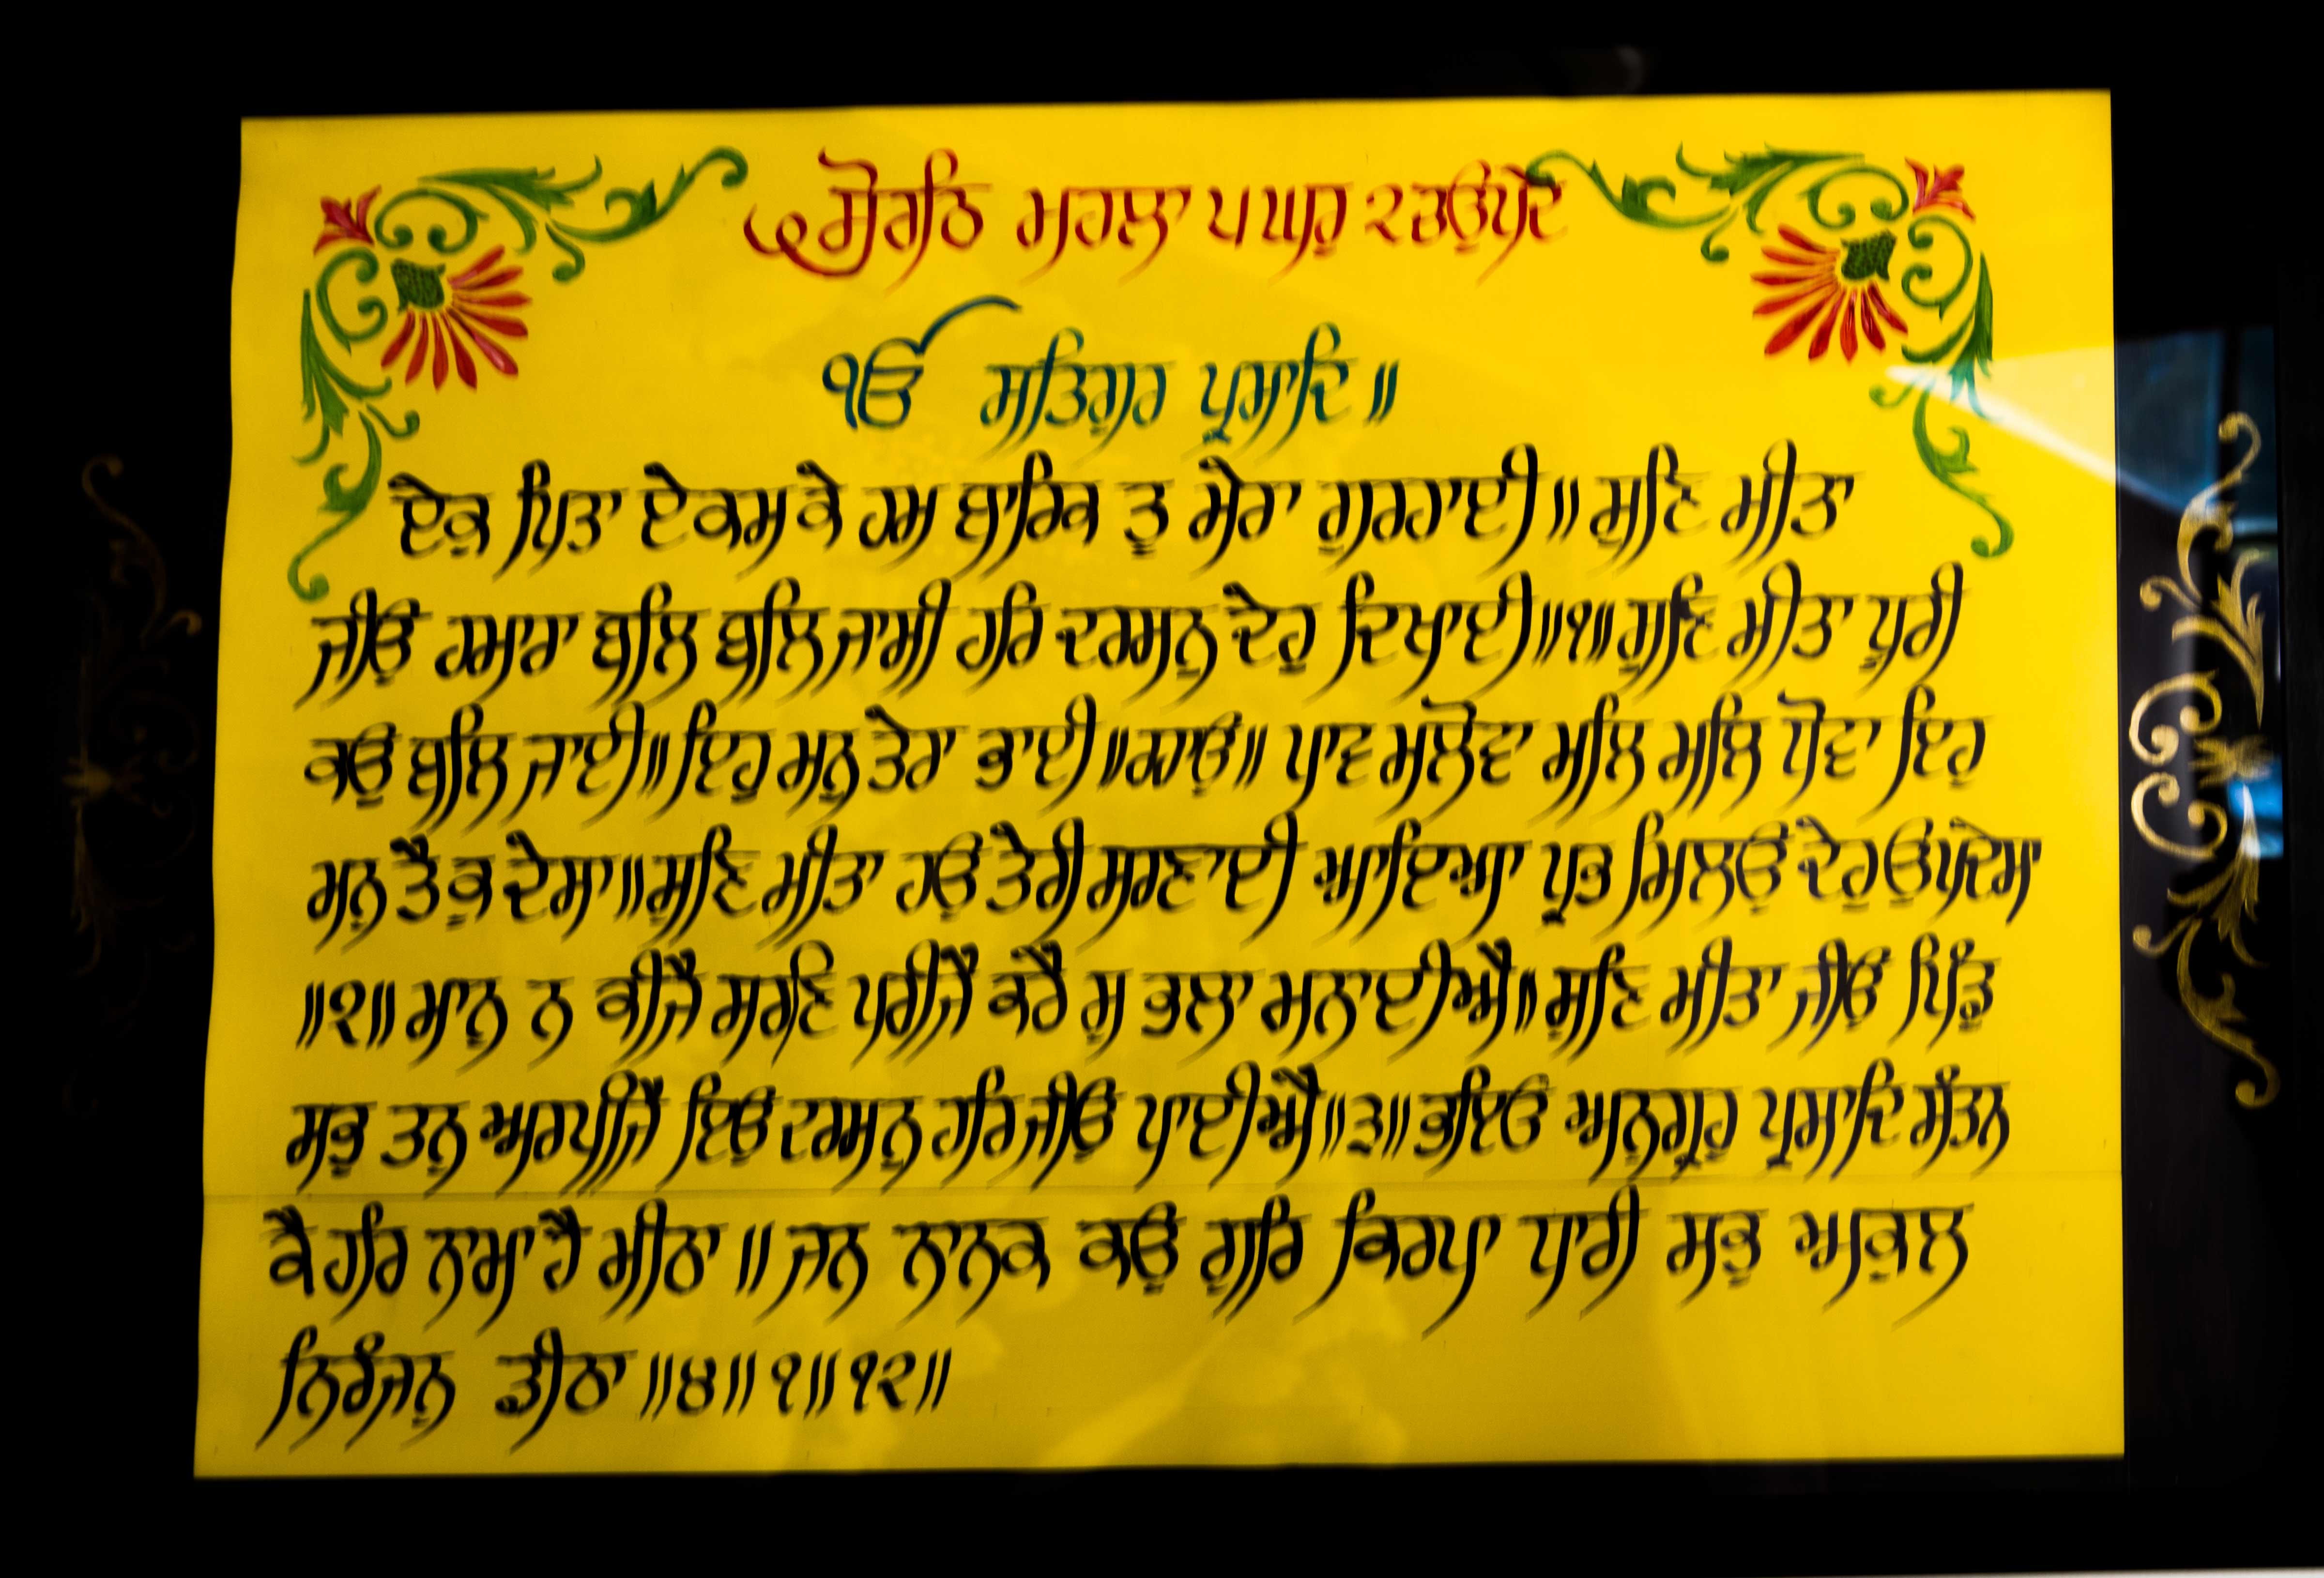 ਸੋਰਠਿ ਮਹਲਾ ੫ ਘਰੁ ੨ ਚਉਪਦੇ
ੴ ਸਤਿਗੁਰ ਪ੍ਰਸਾਦਿ॥
ਏਕੁ ਪਿਤਾ ਏਕਸ ਕੇ ਹਮ ਬਾਰਿਕ ਤੂ ਮੇਰਾ ਗੁਰਹਾਈ॥ ਸੁਣਿ ਮੀਤਾ
ਜੀਉ ਹਮਾਰਾ ਬਲਿ ਬਲਿ ਜਾਸੀ ਹਰਿ ਦਰਸਨੁ ਦੇਹੁ ਦਿਖਾਈ॥੧॥ ਸੁਣਿ ਮੀਤਾ ਧੂਰੀ
ਕਉ ਬਲਿ ਜਾਈ॥ ਇਹੁ ਮਨੁ ਤੇਰਾ ਭਾਈ॥ ਰਹਾਉ॥ ਪਾਵ ਮਲੋਵਾ ਮਲਿ ਮਲਿ ਧੋਵਾ ਇਹੁ
ਮਨੁ ਤੈ ਕੂ ਦੇਸਾ॥ ਸੁਣਿ ਮੀਤਾ ਹਉ ਤੇਰੀ ਸਰਣਾਈ ਆਇਆ ਪ੍ਰਭ ਮਿਲਉ ਦੇਹੁ ਉਪਦੇਸਾ
॥੨॥ ਮਾਨੁ ਨ ਕੀਜੈ ਸਰਣਿ ਪਰੀਜੈ ਕਰੈ ਸੁ ਭਲਾ ਮਨਾਈਐ॥ ਸੁਣਿ ਮੀਤਾ ਜੀਉ ਪਿੰਡੁ
ਸਭੁ ਤਨੁ ਅਰਪੀਜੈ ਇਉ ਦਰਸਨੁ ਹਰਿ ਜੀਉ ਪਾਈਐ॥੩॥ ਭਇਓ ਅਨੁਗ੍ਰਹੁ ਪ੍ਰਸਾਦਿ ਸੰਤਨ
ਕੈ ਹਰਿ ਨਾਮਾ ਹੈ ਮੀਠਾ॥ ਜਨ ਨਾਨਕ ਕਉ ਗੁਰਿ ਕਿਰਪਾ ਧਾਰੀ ਸਭੁ ਅਕੁਲ
ਨਿਰੰਜਨੁ ਡੀਠਾ॥੪॥੧॥੧੨॥